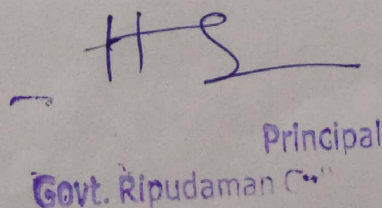 HS
Principal
Govt. Ripudaman